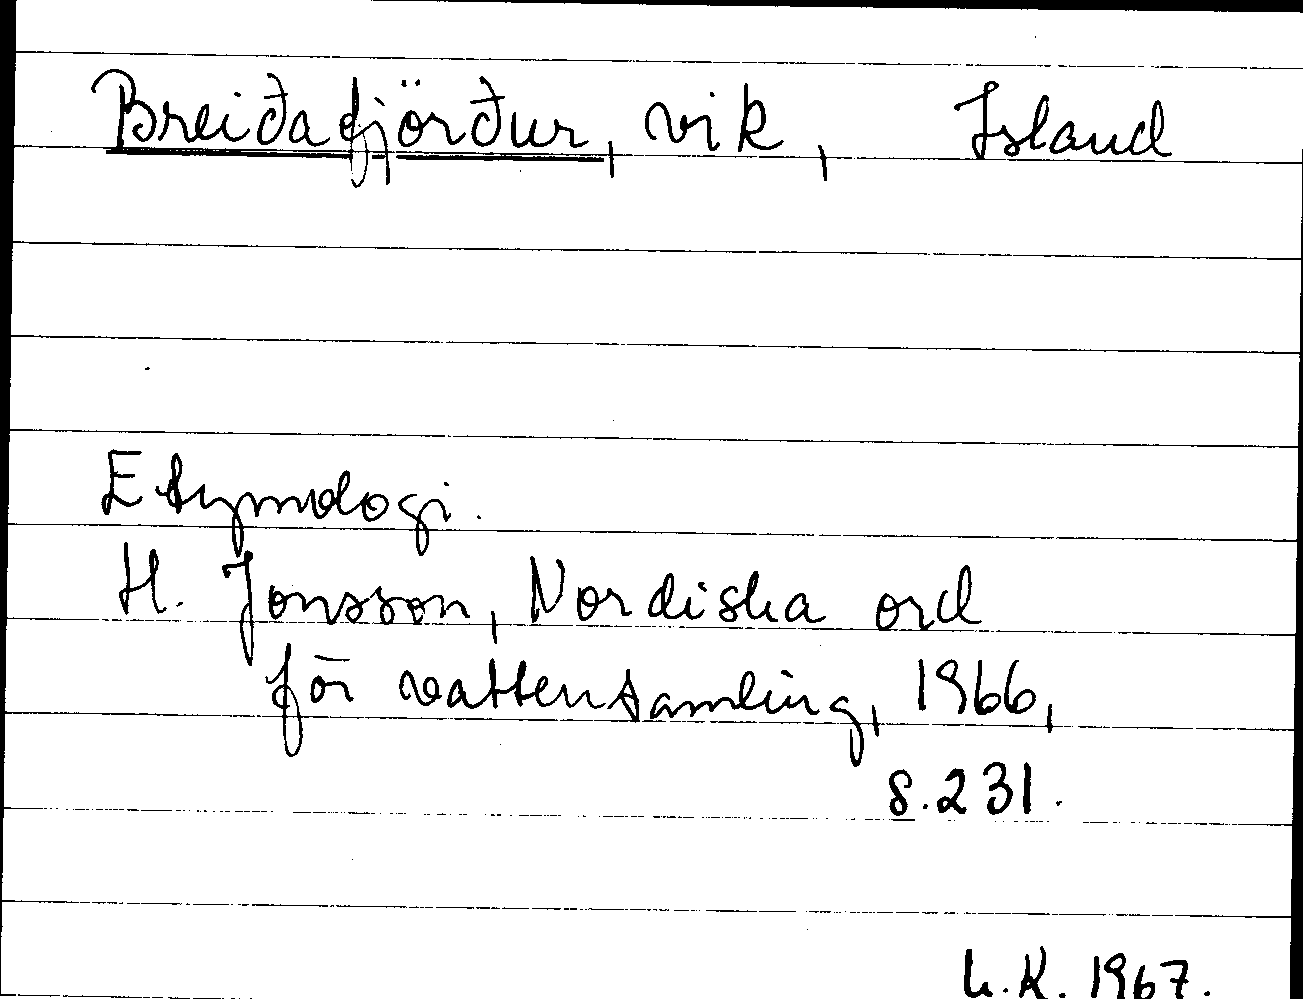 Breiðafjörður, vik, Island
Etymologi.
H. Jonsson, Nordiska ord
för vattensamling, 1966,
s. 231.
L.K. 1967.